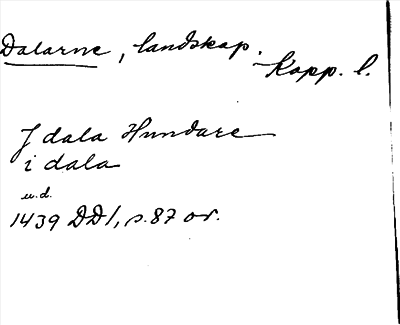 Dalarne, landskap.
Kopp. l.
J dala Hundare
i dala
u.d.
1439 DD1, s. 87 or.